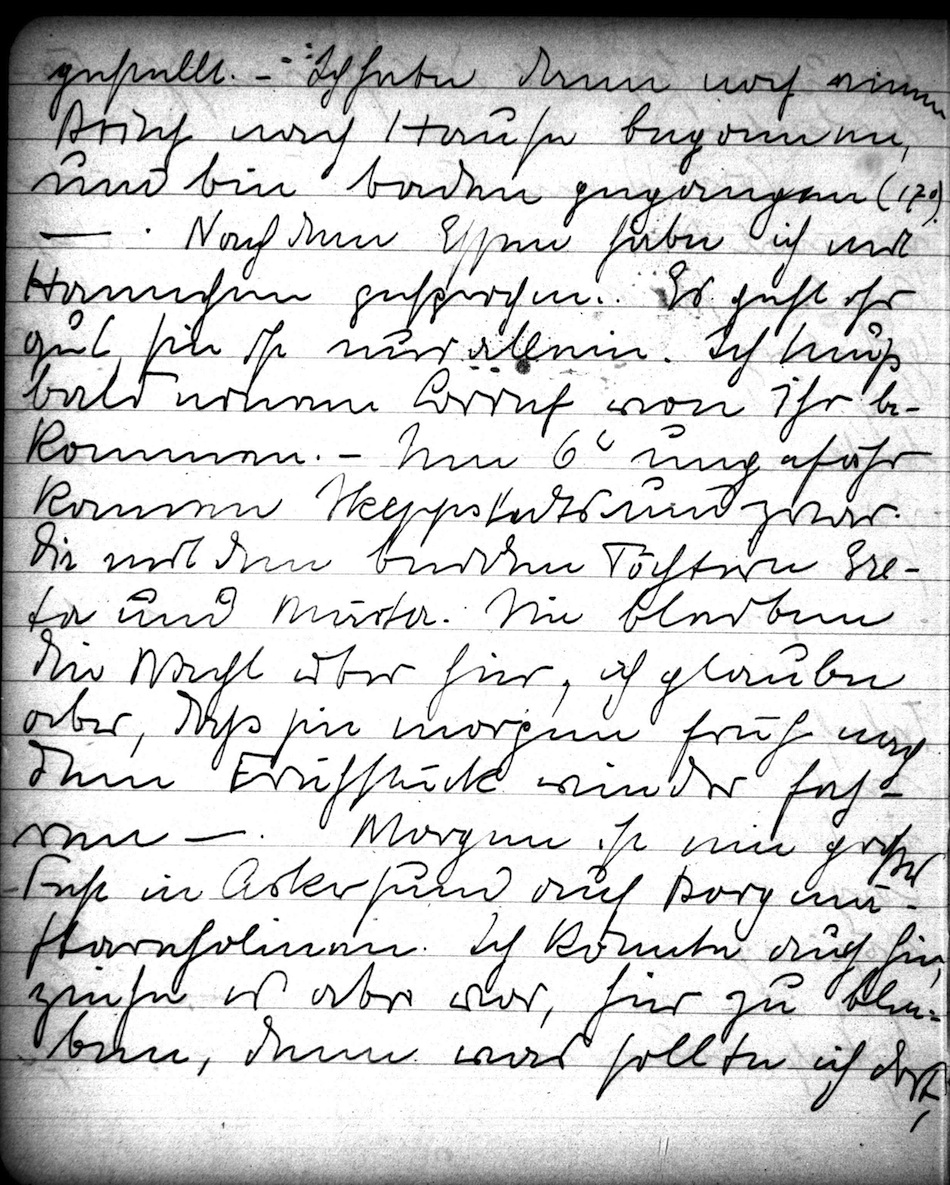 gespielt. – Ich habe dann noch einen
Brief nach Hause begonnen,
und bin baden gegangen (17°)
— . Nach dem Essen habe ich mit
Hannchen gesprochen. Es geht ihr
gut, sie ist nur allein. Ich muß
bald einen von ihr be-
kommen. – Um 6 ungefähr
kamen und zwar
die mit den beiden Töchtern Gre-
ta und Märta. Sie bleiben
die Nacht über hier, ich glaube
aber, daß sie morgen früh nach
dem Frühstück wieder fah-
ren —. Morgen ist ein großes
Fest in Askersund auf Borgmä-
starholmen. Ich könnte auch hin,
ziehe es aber vor, hier zu blei-
ben, denn was sollte ich dort,